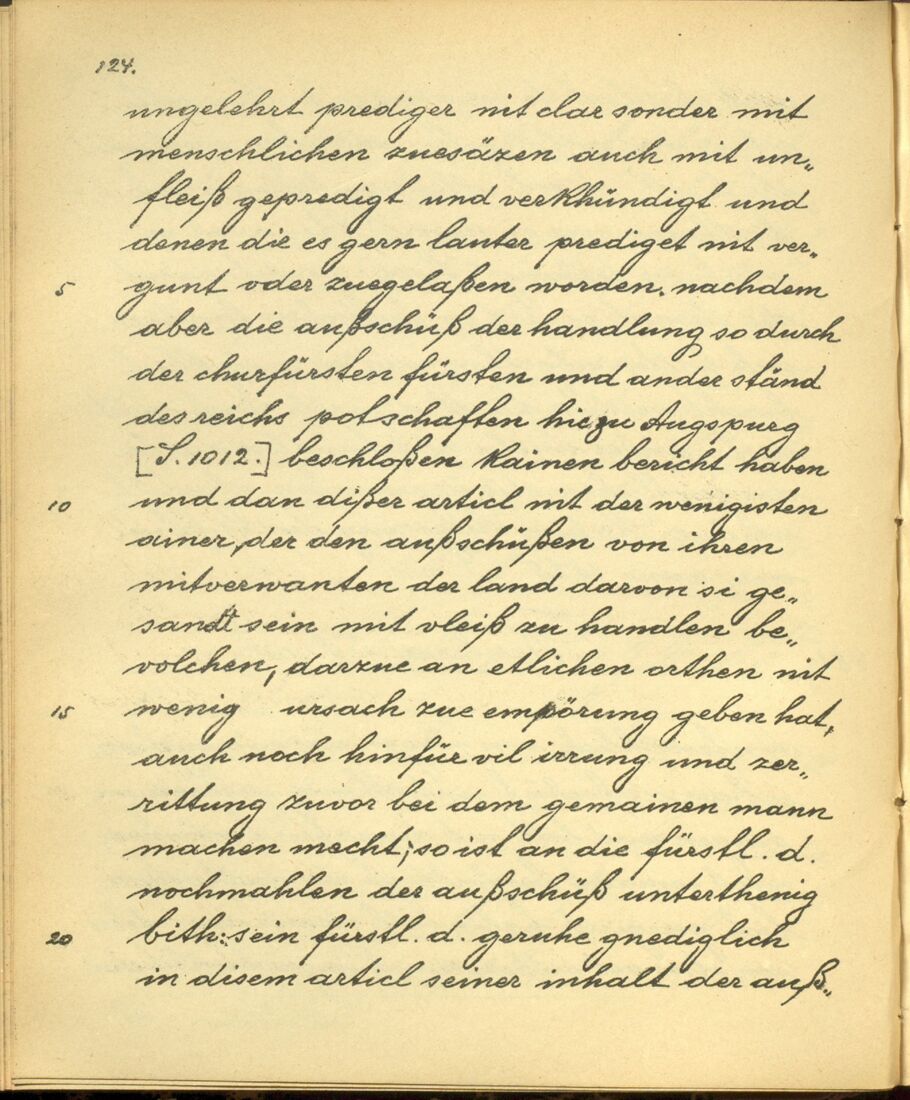 124.
ungelehrt prediger nit clar sonder mit
menschlichen zuesäzen auch mit un„
fleiß gepredigt und verkhündigt und
denen die es gern lauter prediget nit ver„
5 gunt oder zuegelaßen worden. nachdem
aber die außschüß der handlung so durch
der churfürsten fürsten und ander ständ
des reichs potschaften hiezu Augspurg
[S. 1012.] beschloßen kainen bericht haben
10 und dan dißer articl nit der wenigisten
ainer, der den außschüßen von ihren
mitverwanten der land darvon si ge„
sandt sein mit vleiß zu handlen be„
volchen, darzue an etlichen orthen nit
15 wenig ursach zue empörung geben hat,
auch noch hinfür vil irrung und zer„
rittung zuvor bei dem gemainen mann
machen mecht; so ist an die fürstl. d.
nochmahlen der außschüß unterthenig
20 bith: sein fürstl. d. geruhe gnediglich
in disem articl seiner inhalt der auß„